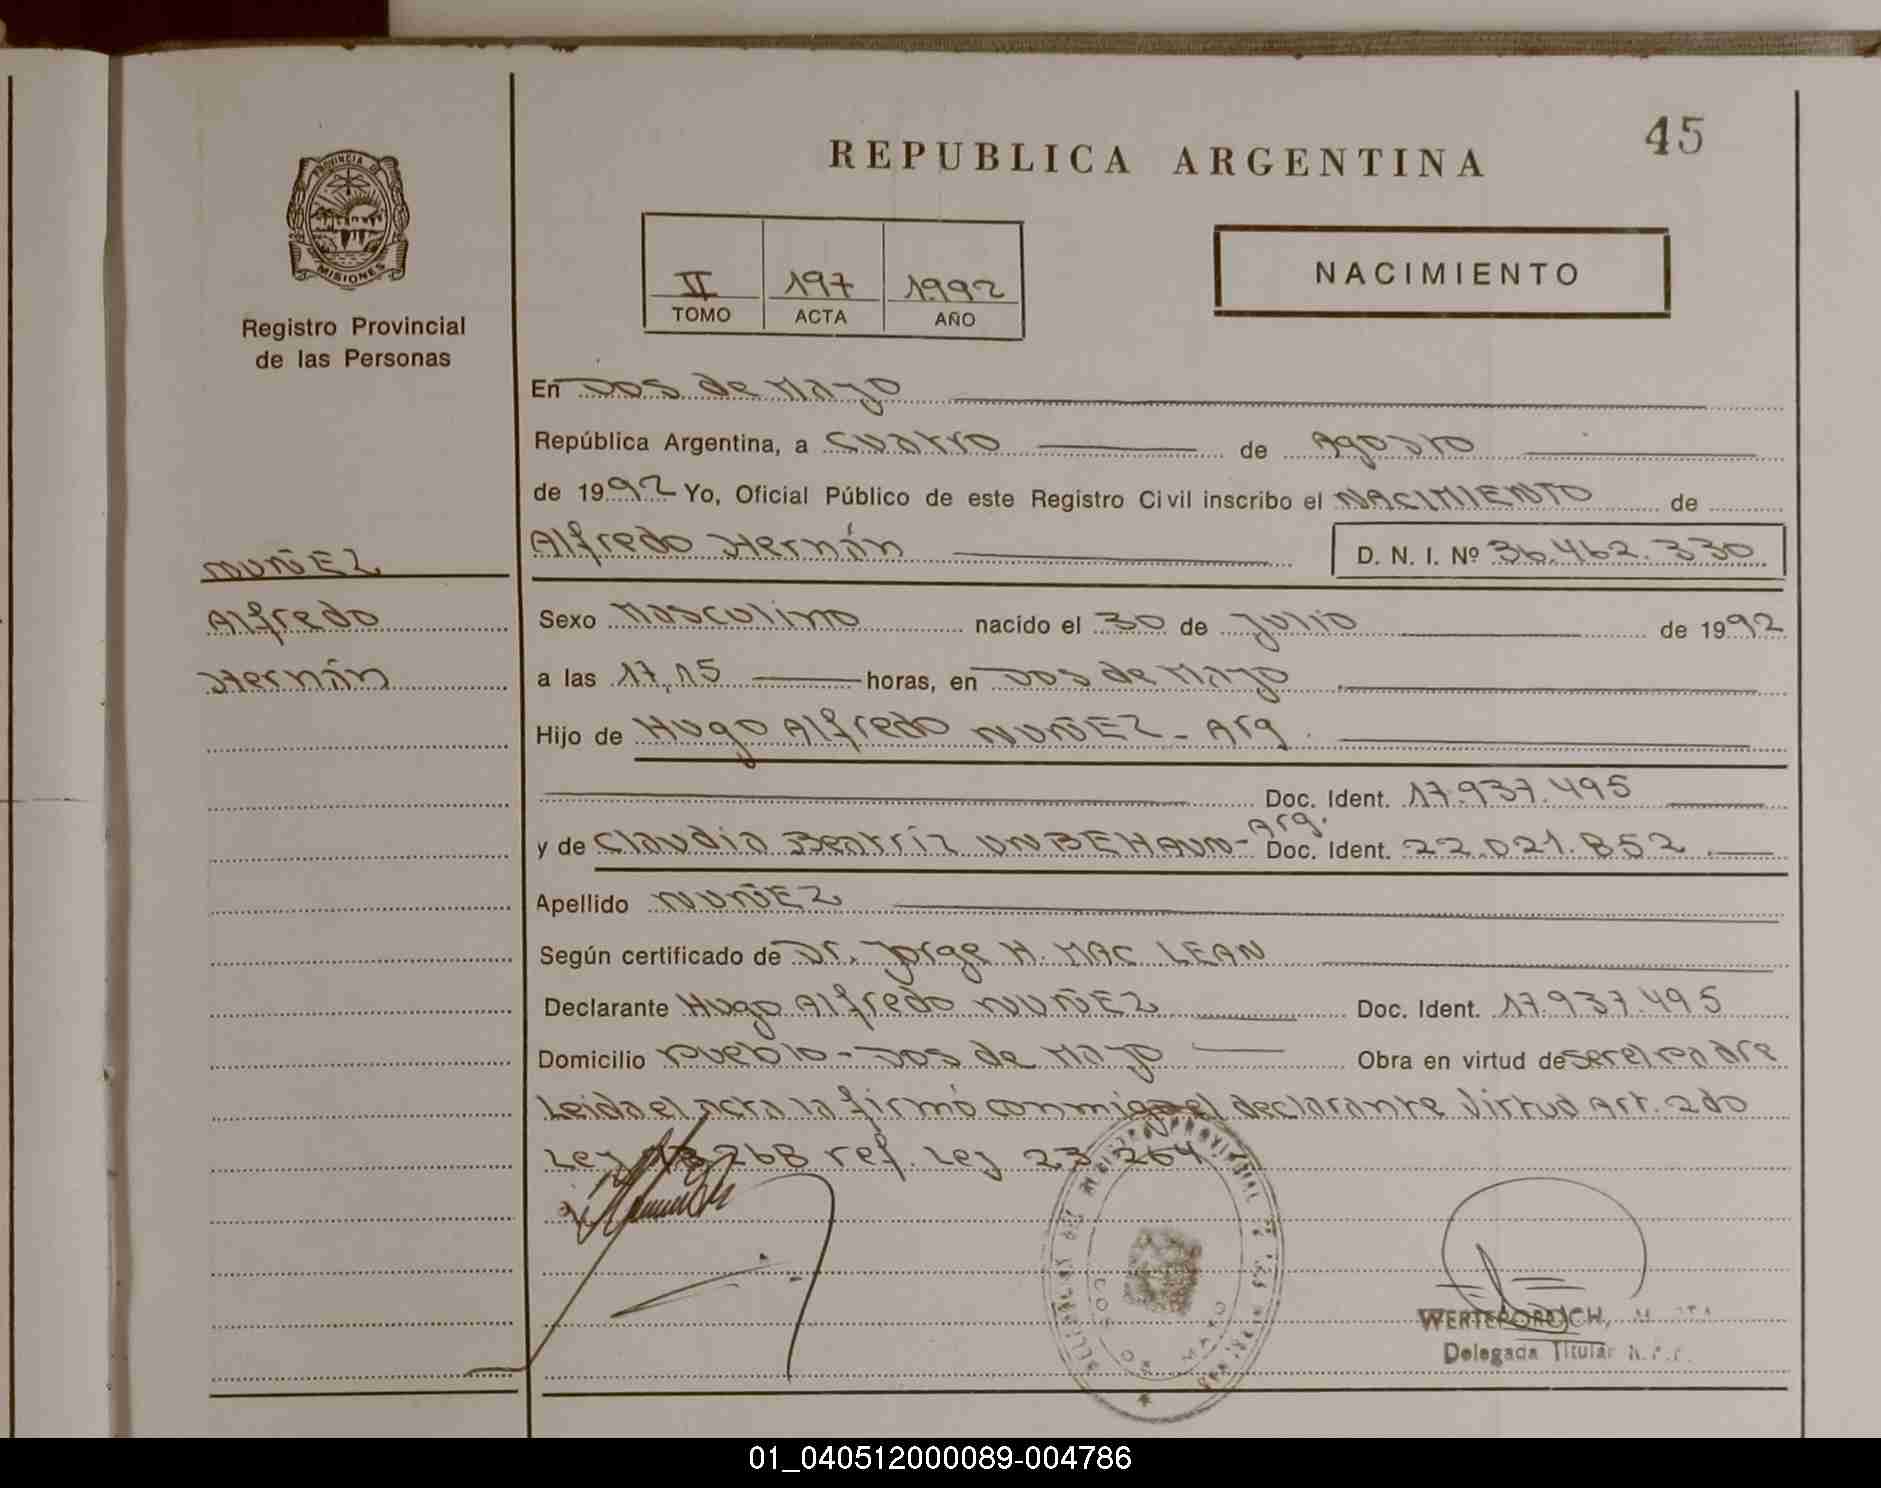 45
REPUBLICA ARGENTINA
PROVINCIA DE
MISIONES
Registro Provincial
de las Personas
II 197 1992
TOMO ACTA AÑO
NACIMIENTO
En Dos de Mayo
República Argentina, a cuatro de Agosto
de 1992 Yo, Oficial Público de este Registro Civil inscribo el NACIMIENTO de
Alfredo Hernán D. N. I. Nº 36.462.330
NUÑEZ
Alfredo
Hernán
Sexo Masculino nacido el 30 de Julio de 1992
a las 17,15 horas, en Dos de Mayo
Hijo de Hugo Alfredo NUÑEZ - Arg.
Doc. Ident. 17.937.495
y de Claudia Beatríz UNBEHAUN - Arg. Doc. Ident. 22.021.852
Apellido NUÑEZ
Según certificado de Dr. Jorge H. MAC LEAN
Declarante Hugo Alfredo NUÑEZ Doc. Ident. 17.937.495
Domicilio Pueblo - Dos de Mayo Obra en virtud de ser el padre
Leida el acta la firmó conmigo el declarante virtud Art. 2do
Ley 18.268 ref. Ley 23.264
REGISTRO PROVINCIAL DE LAS PERSONAS
DOS DE MAYO
Delegada Titular R.P.P.
01_040512000089-004786